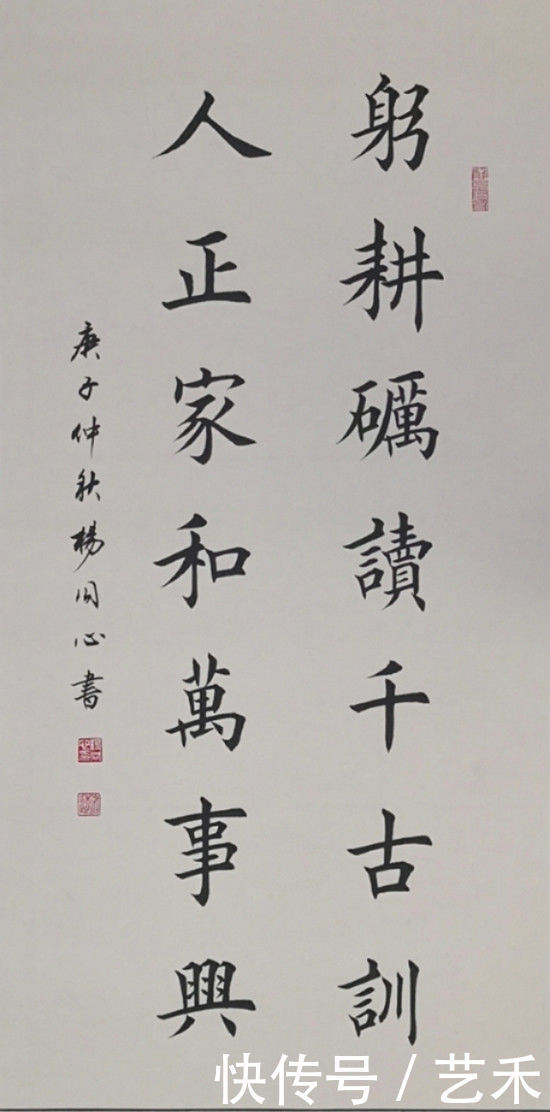 躬耕礪讀千古訓
人正家和萬事興
庚子仲秋楊同心書
快传号/艺禾